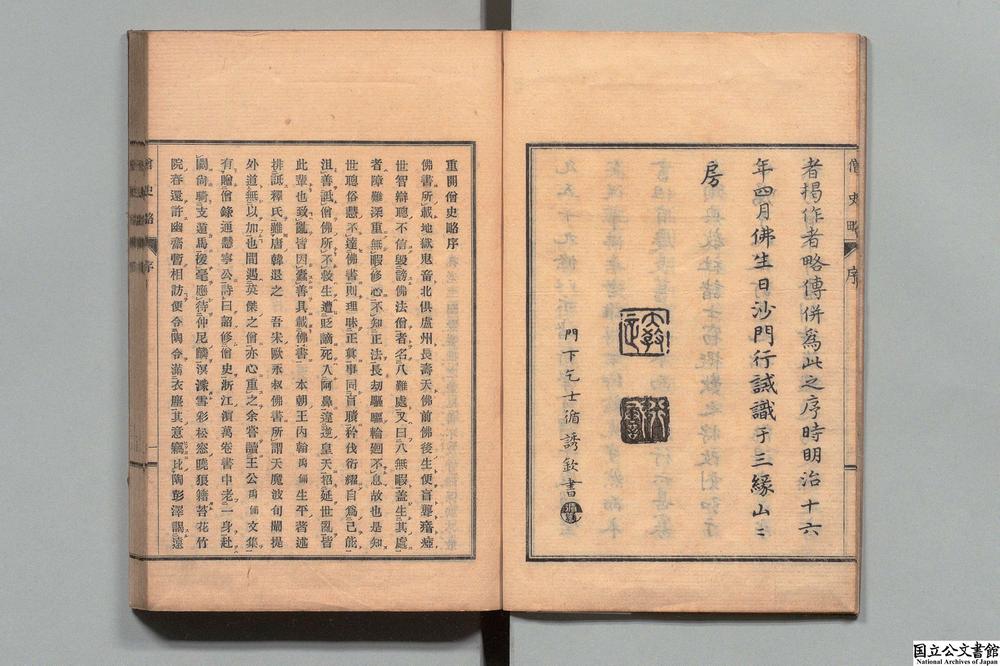 者揭作者略傳併為此之序時明治十六
年四月佛生日沙門行誡識于三緣山ミ
房
門下乞士循誘欽書
僧史略 序
重開僧史略序
佛書所載地獄鬼畜北俱盧州長壽天佛前佛後生便盲聾瘖瘂
世智辯聰不信毀謗佛法僧者名八難處又曰八無暇蓋生其處
者障難深重無暇修心不知正法長劫驅驅輪廻不息故也是知
世聰俗慧不達佛書則理昧正眞事同盲瞶矜伐衒耀自爲己能
沮善詆僧佛所不救生遭貶謫死入阿鼻違逆皇天招延世亂皆
此輩也致亂皆因蠹善具載佛書 本朝王内翰禹偁生平著述
排詆釋氏雖唐韓退之 吾宋歐永叔佛書所謂天魔波旬闡提
外道無以加也間遇英傑之僧亦心重之余嘗讀王公禹偁文集
有贈僧錄通慧寧公詩曰韶修僧史浙江濱萬卷書中老一身赴
闕尙騎支遁馬援毫應待仲尼麟溟濛雪彩松窓曉狼籍苔花竹
院春還許幽齋暫相訪便令陶令滿衣塵其意竊比陶彭澤說遠
僧史略 序
国立公文書館
National Archives of Japan